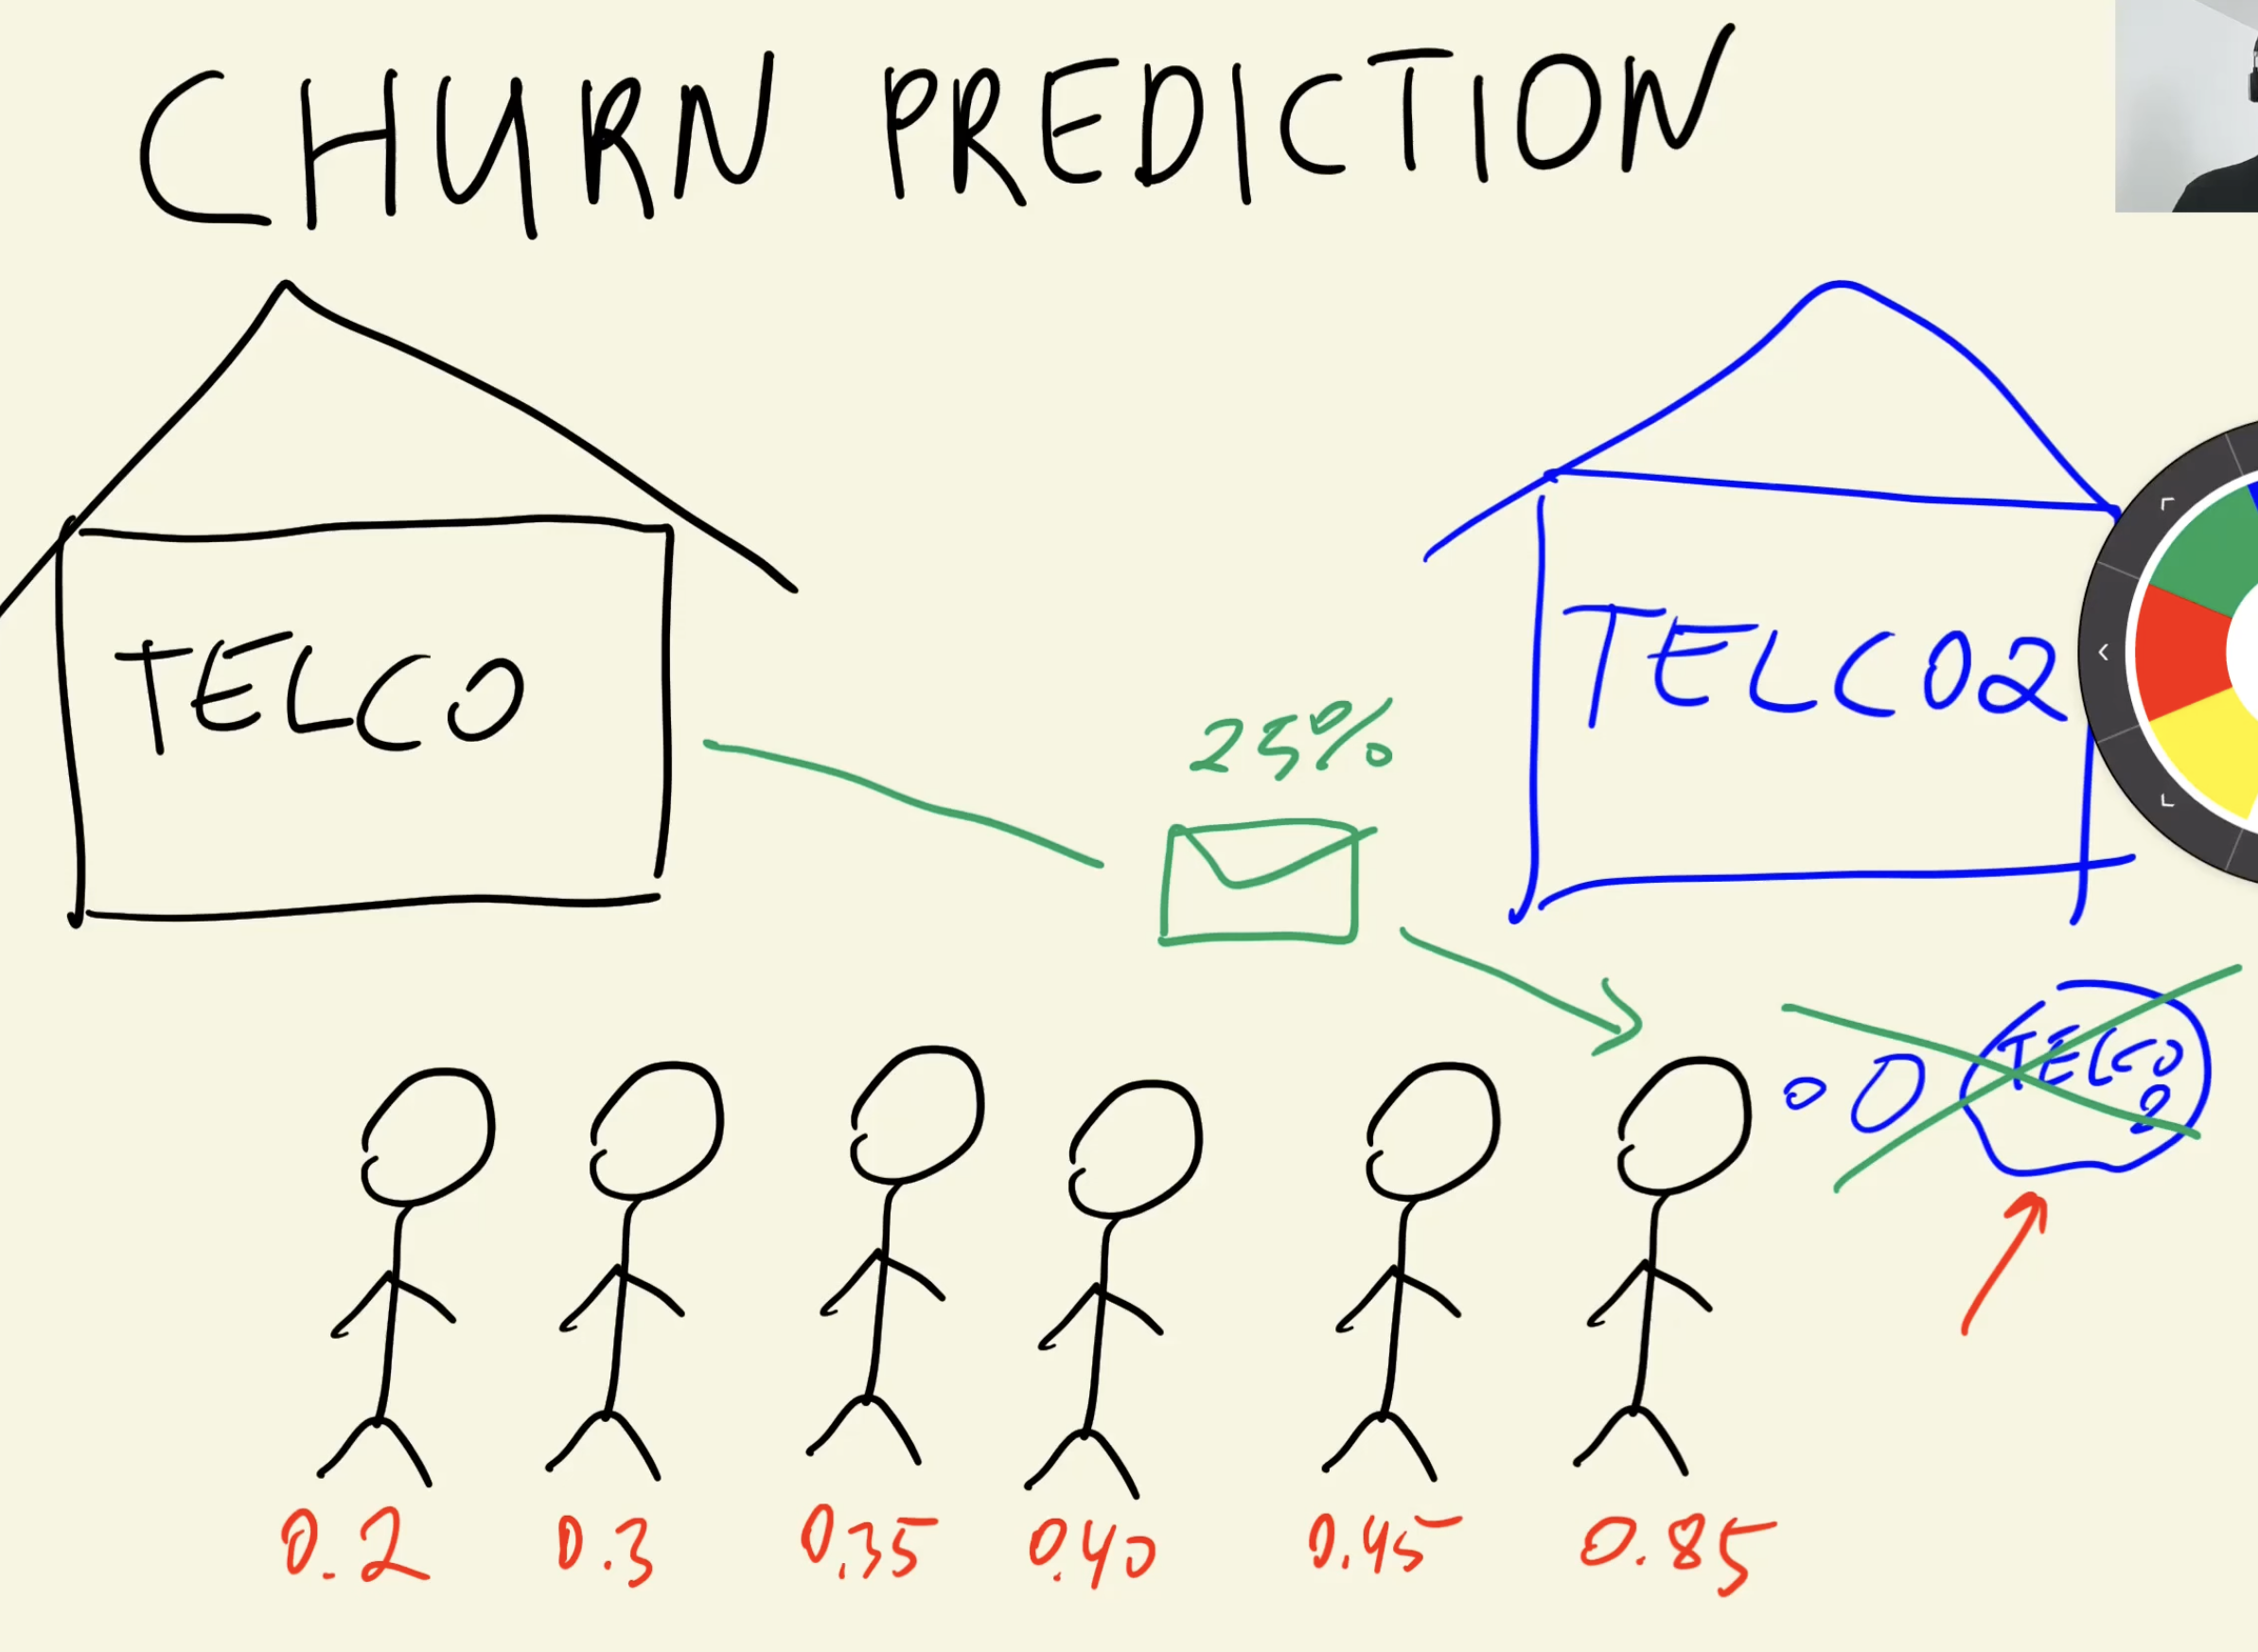 CHURN PREDICTION
TELCO
TELCO2
25%
TELCO
2
0.2 0.3 0.35 0.40 0.45 0.85